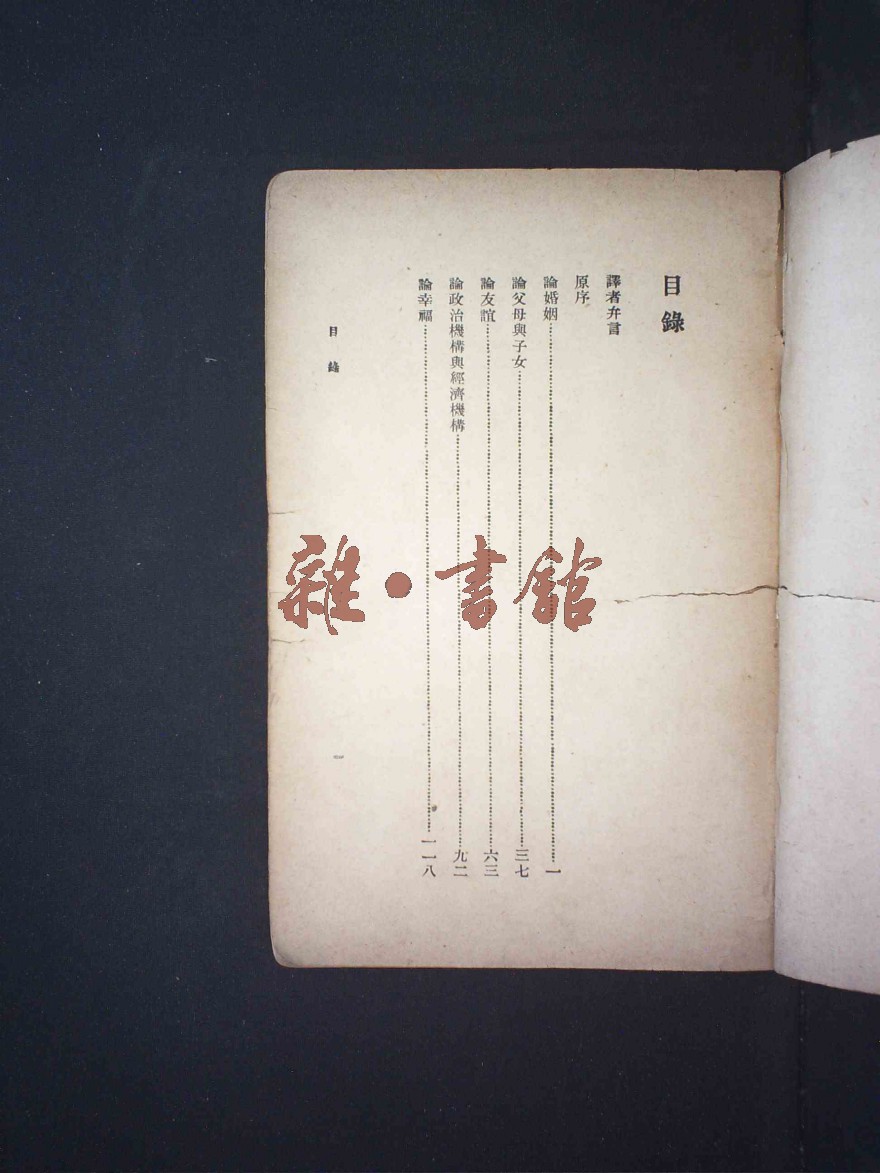 目錄
譯者弁言
原序
論婚姻……一
論父母與子女……三七
論友誼……六三
論政治機構與經濟機構……九二
論幸福……一一八
目錄
一
雜·書館